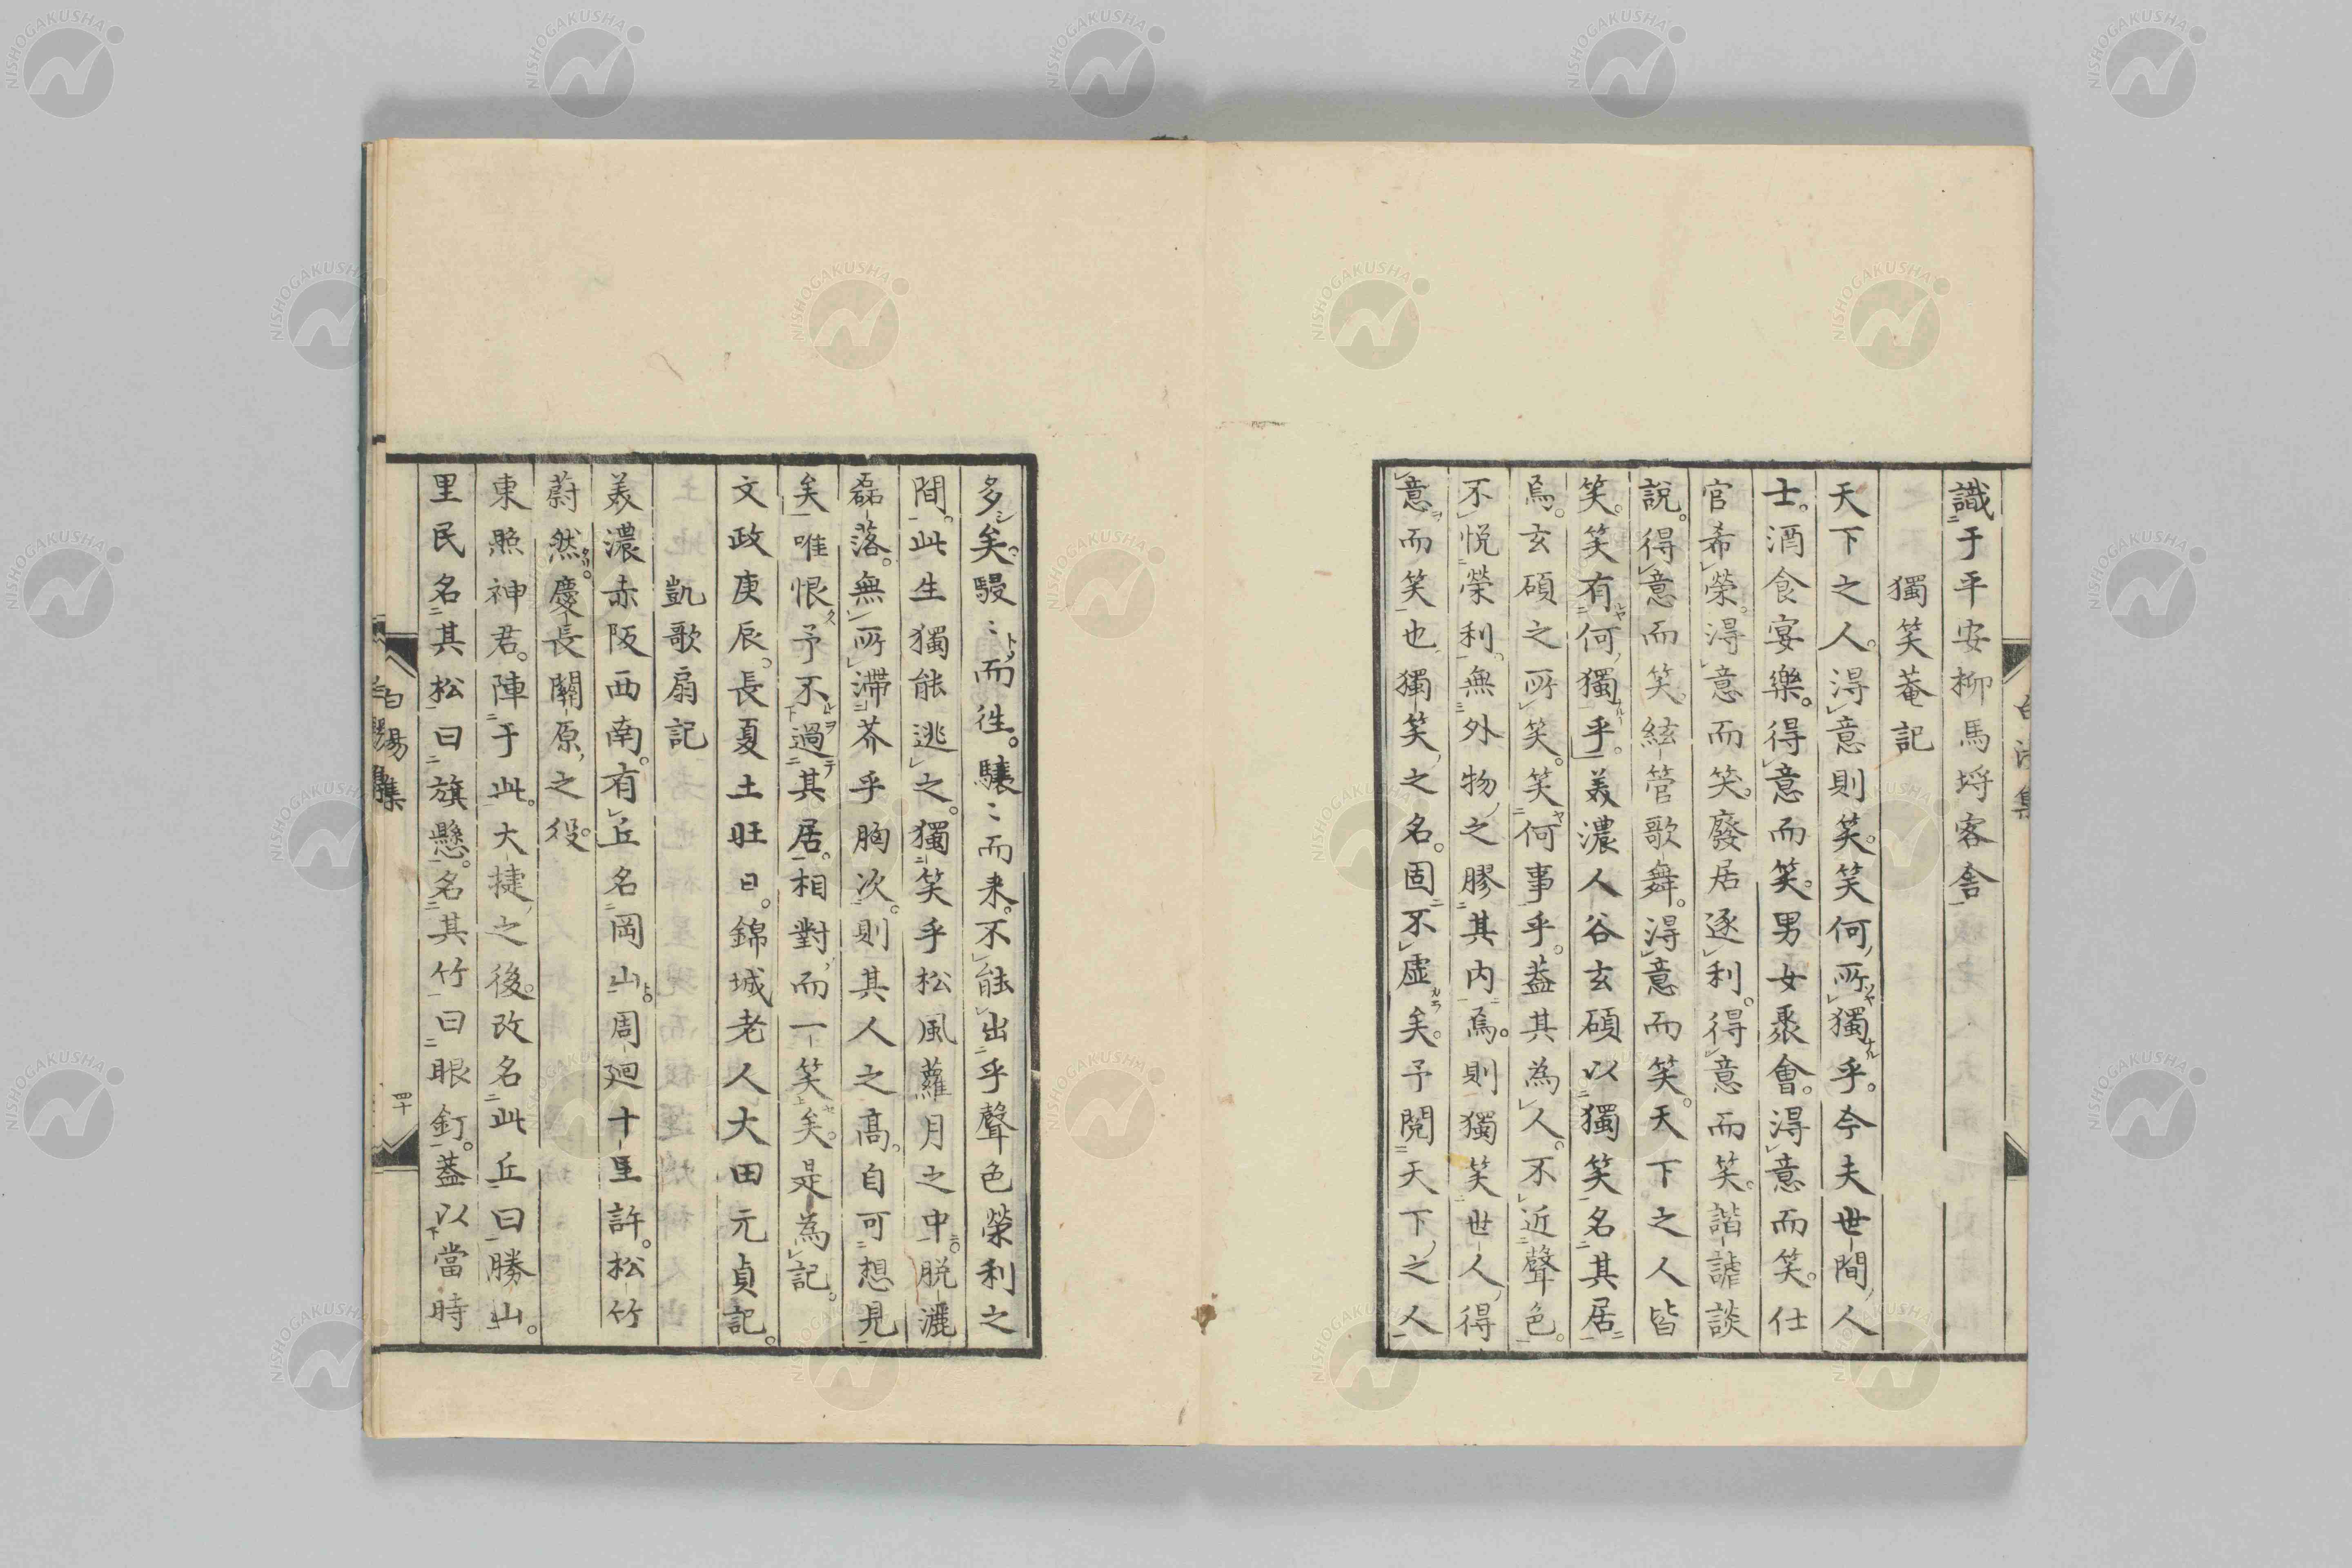 識于平安柳馬埒客舎
獨笑菴記
天下之人。得意則笑。笑何所獨乎。今夫世間人
士。酒食宴樂。得意而笑。男女聚會。得意而笑。仕
官希榮。得意而笑。廢居逐利。得意而笑。諧謔談
說。得意而笑。絃管歌舞。得意而笑。天下之人皆
笑。笑有何獨乎。美濃人谷玄碩以獨笑名其居
焉。玄碩之所笑。笑何事乎。葢其為人。不近聲色。
不悦榮利。無外物之膠其内焉。則獨笑世人得
意而笑也。獨笑之名。固不虛矣。予閱天下之人
多矣。駸〻而徃。驤〻而来。不能出乎聲色榮利之
間。此生獨能逃之。獨笑乎松風蘿月之中。脱灑
磊落。無所滯芥乎胸次。則其人之高。自可想見
矣。唯恨予不過其居。相對而一笑矣。是為記。
文政庚辰。長夏土旺日。錦城老人大田元貞記。
凱歌扇記
美濃赤阪西南。有丘名岡山。周廻十里許。松竹
蔚然。慶長關原之役。
東照神君。陣于此。大捷之後。改名此丘曰勝山。
里民名其松曰旗懸。名其竹曰眼釘。葢以當時
四十
NISHOGAKUSHA